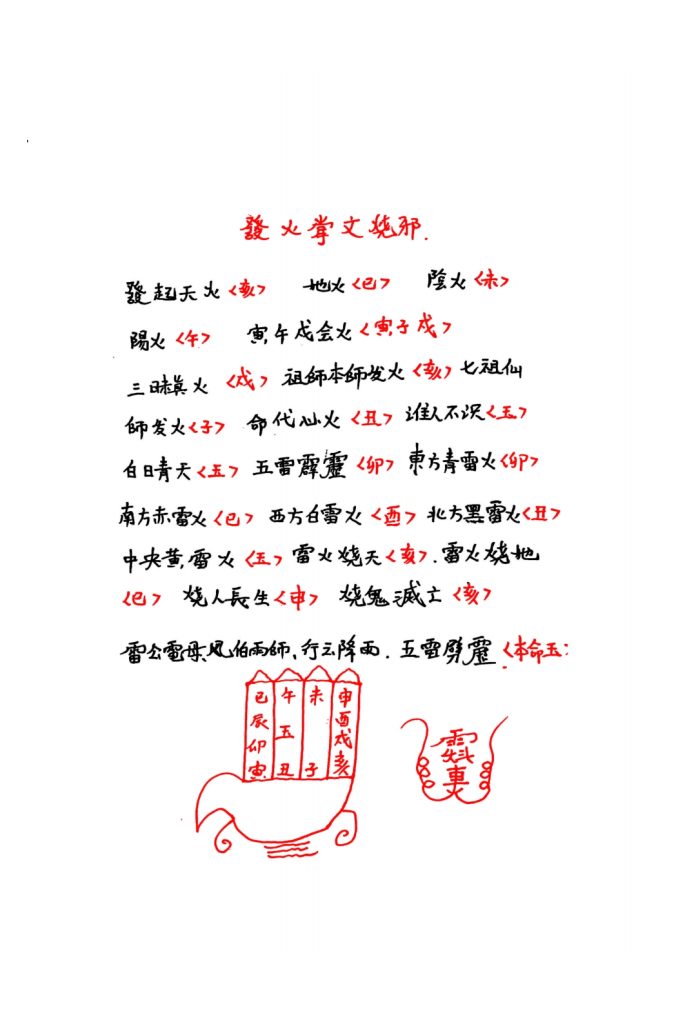 發火掌文燒邪.
發起天火<亥> 地火<巳> 陰火<未>
陽火<午> 寅,午戌会火<寅,子戌>
三昧真火 <戌> 祖師本師发火<亥>七祖仙
師发火<子> 命代火 <丑> 谁人不识<五>
白日青天<五> 五雷霹靂<卯> 東方青雷火<卯>
南方赤雷火<巳> 西方白雷火<酉> 北方黑雷火<丑>
中央黄,雷火<五> 雷火燒天<亥>.雷火燒地
<巳> 燒人長生<申> 燒鬼滅亡<亥>
雷公電母,風伯雨師,行云降雨.五雷劈靂<本命五:
巳 午 未 申
辰 五 酉
卯 戌
寅 丑 子 亥
車
火